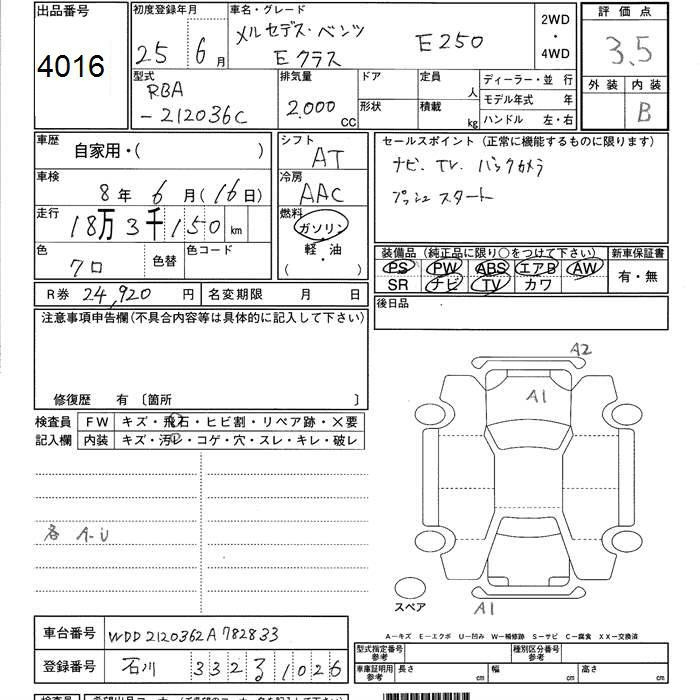 出品番号
4016
初度登録年月
25年 6月
車名・グレード
メルセデス・ベンツ
Eクラス E250
2WD
・
4WD
評価点
3.5
外装 内装
B
型式
RBA
-212036C
排気量
2,000 CC
ドア
形状
定員 人
積載 kg
ディーラー・並 行
モデル年式 年
ハンドル 左・右
車歴
自家用・( )
車検
8年 6月(16日)
走行
18万3千150km
色
クロ
色替
色コード
シフト
AT
冷房
AAC
燃料
ガソリン
軽・油
( )
セールスポイント (正常に機能するものに限ります)
ナビ. TV. バックカメラ
プッシュスタート
装備品 (純正品に限り○をつけて下さい)
PS PW ABS エアB AW
SR ナビ TV カワ
新車保証書
有・無
後日品
R券 24,920 円
名変期限 月 日
注意事項申告欄(不具合内容等は具体的に記入して下さい)
修復歴 有 〔箇所 〕
検査員
記入欄
FW キズ・飛石・ヒビ割・リペア跡・×要
内装 キズ・汚レ・コゲ・穴・スレ・キレ・破レ
各 A-U
A2
A1
A1
スペア
A―キズ E―エクボ U―凹み W―補修跡 S―サビ C―腐食 XX―交換済
車台番号 WDD2120362A782833
登録番号 石川 332 る 1026
型式指定番号
参考
種別区分番号
参考
車庫証明用
参考
長さ cm 幅 cm 高さ cm